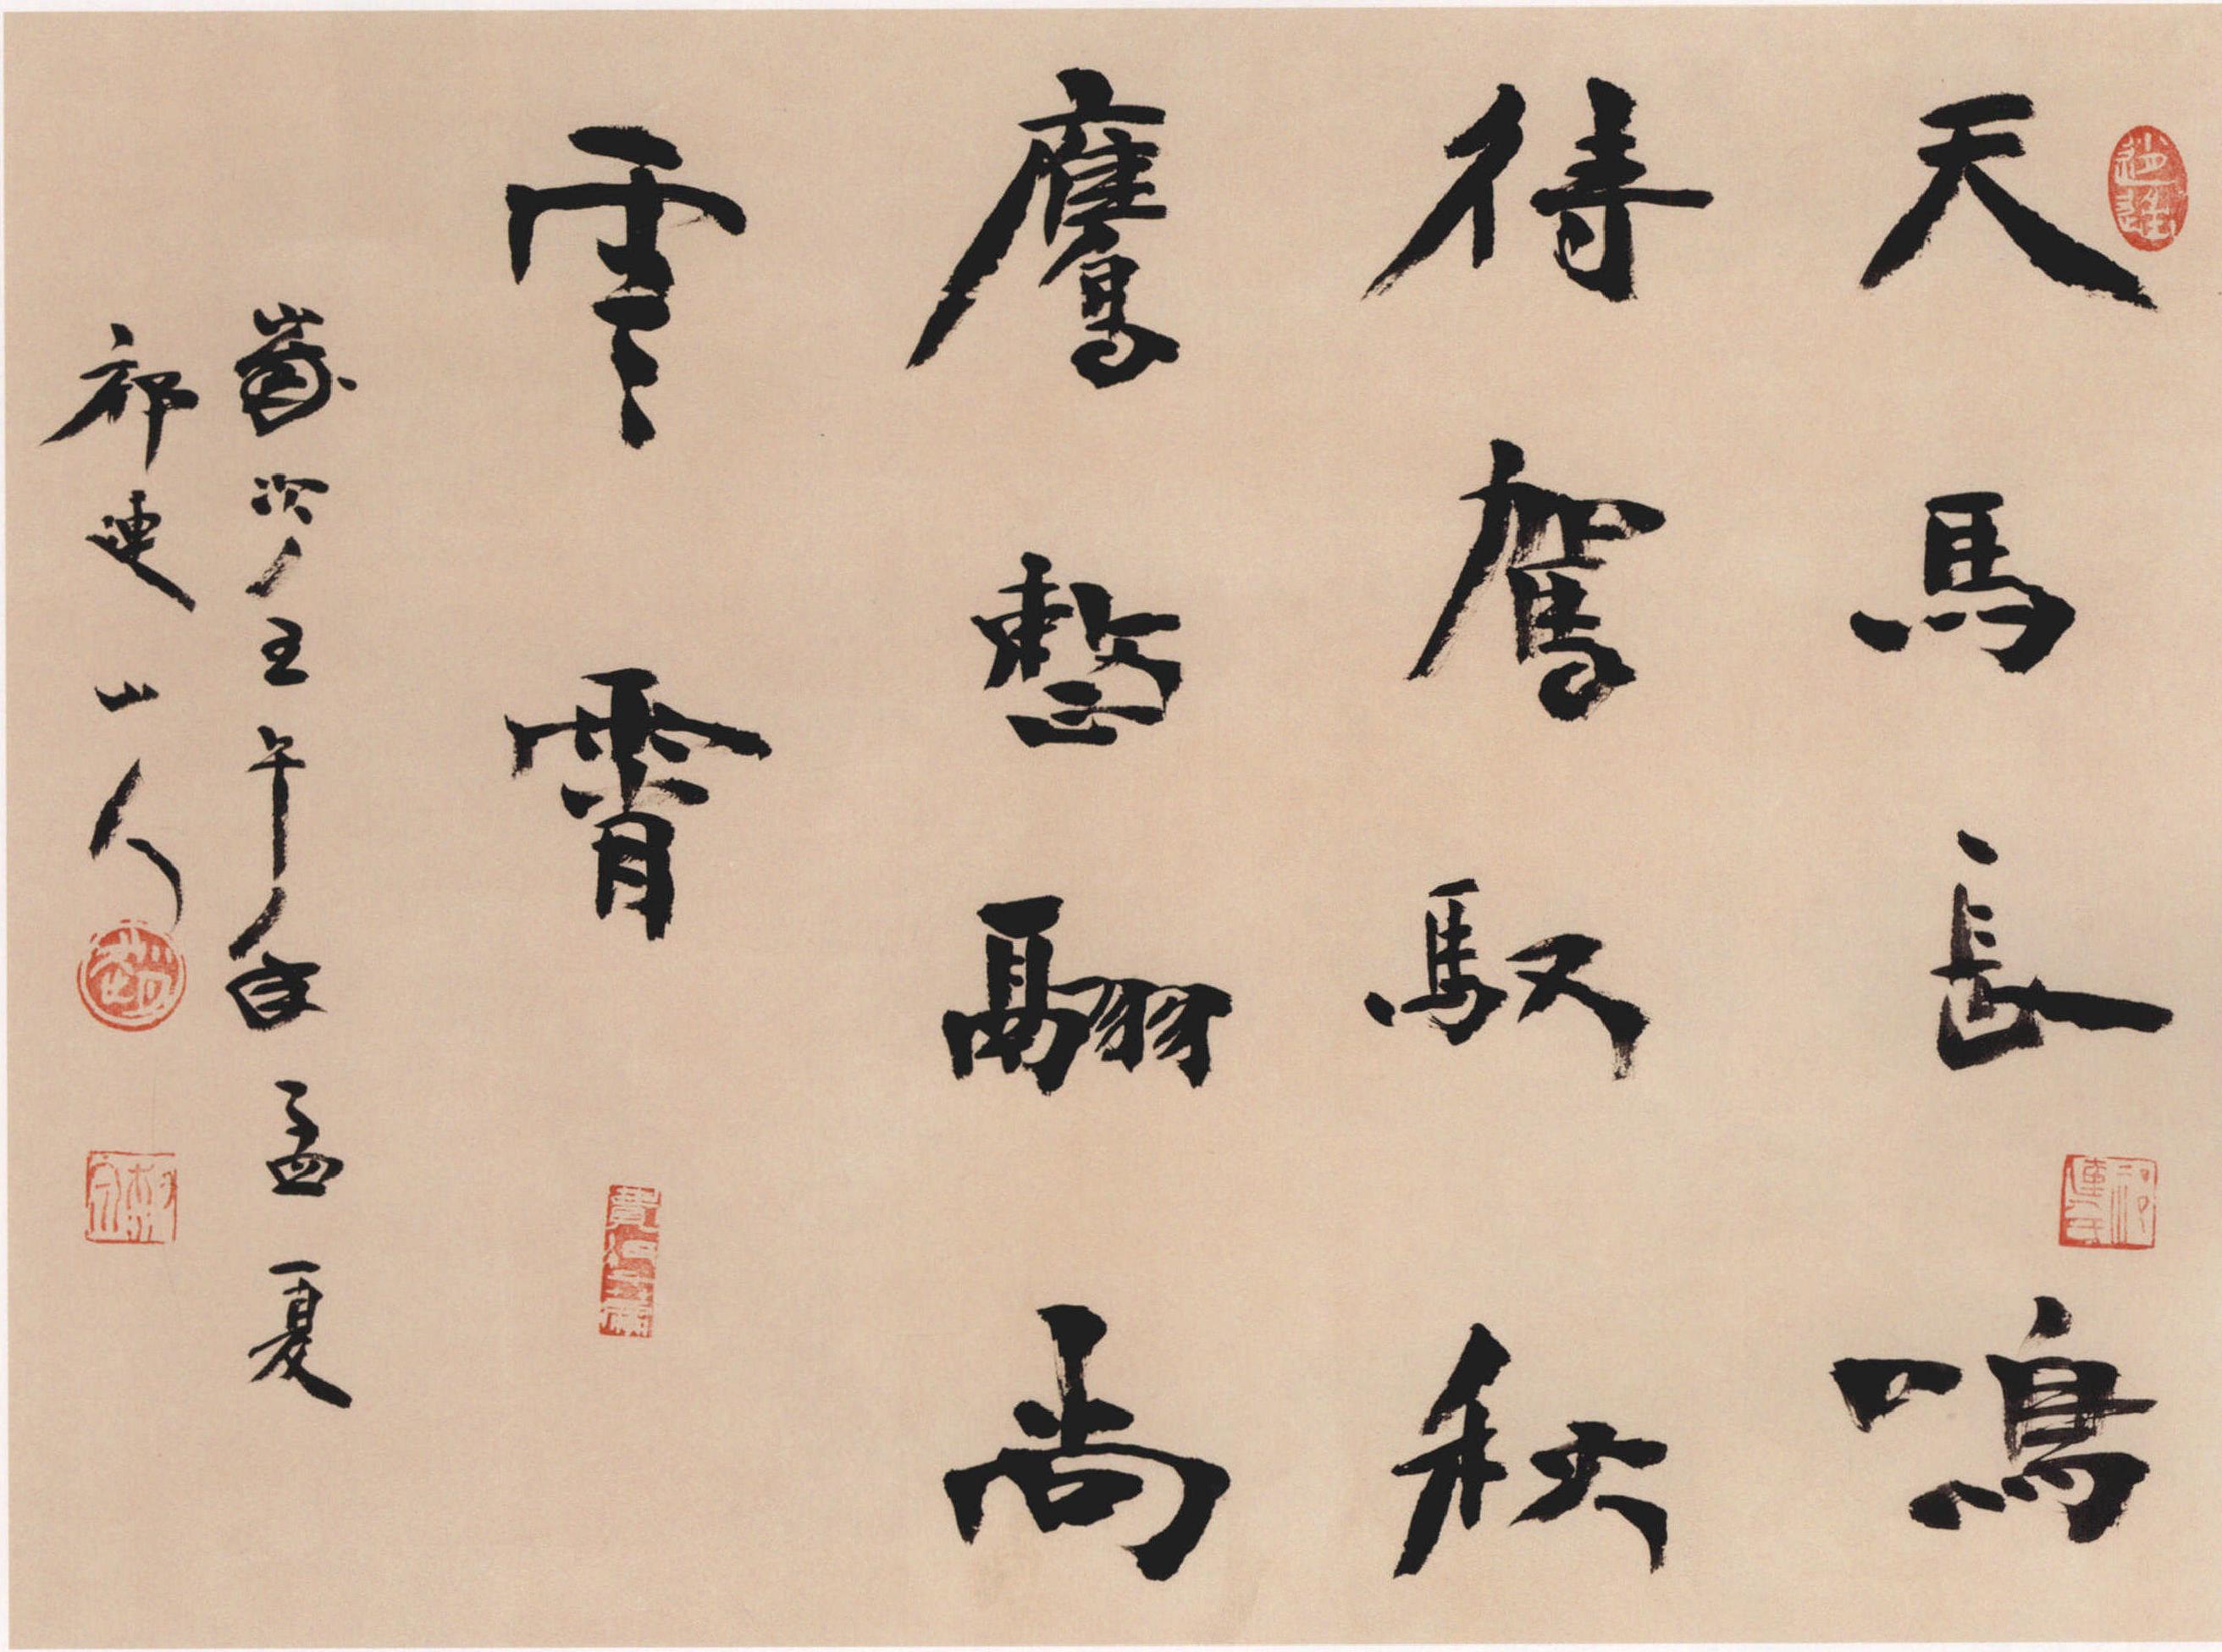 天馬長鳴
待駕馭秋
鷹整翮尚
雲霄
歲次壬午年孟夏
祁連山人